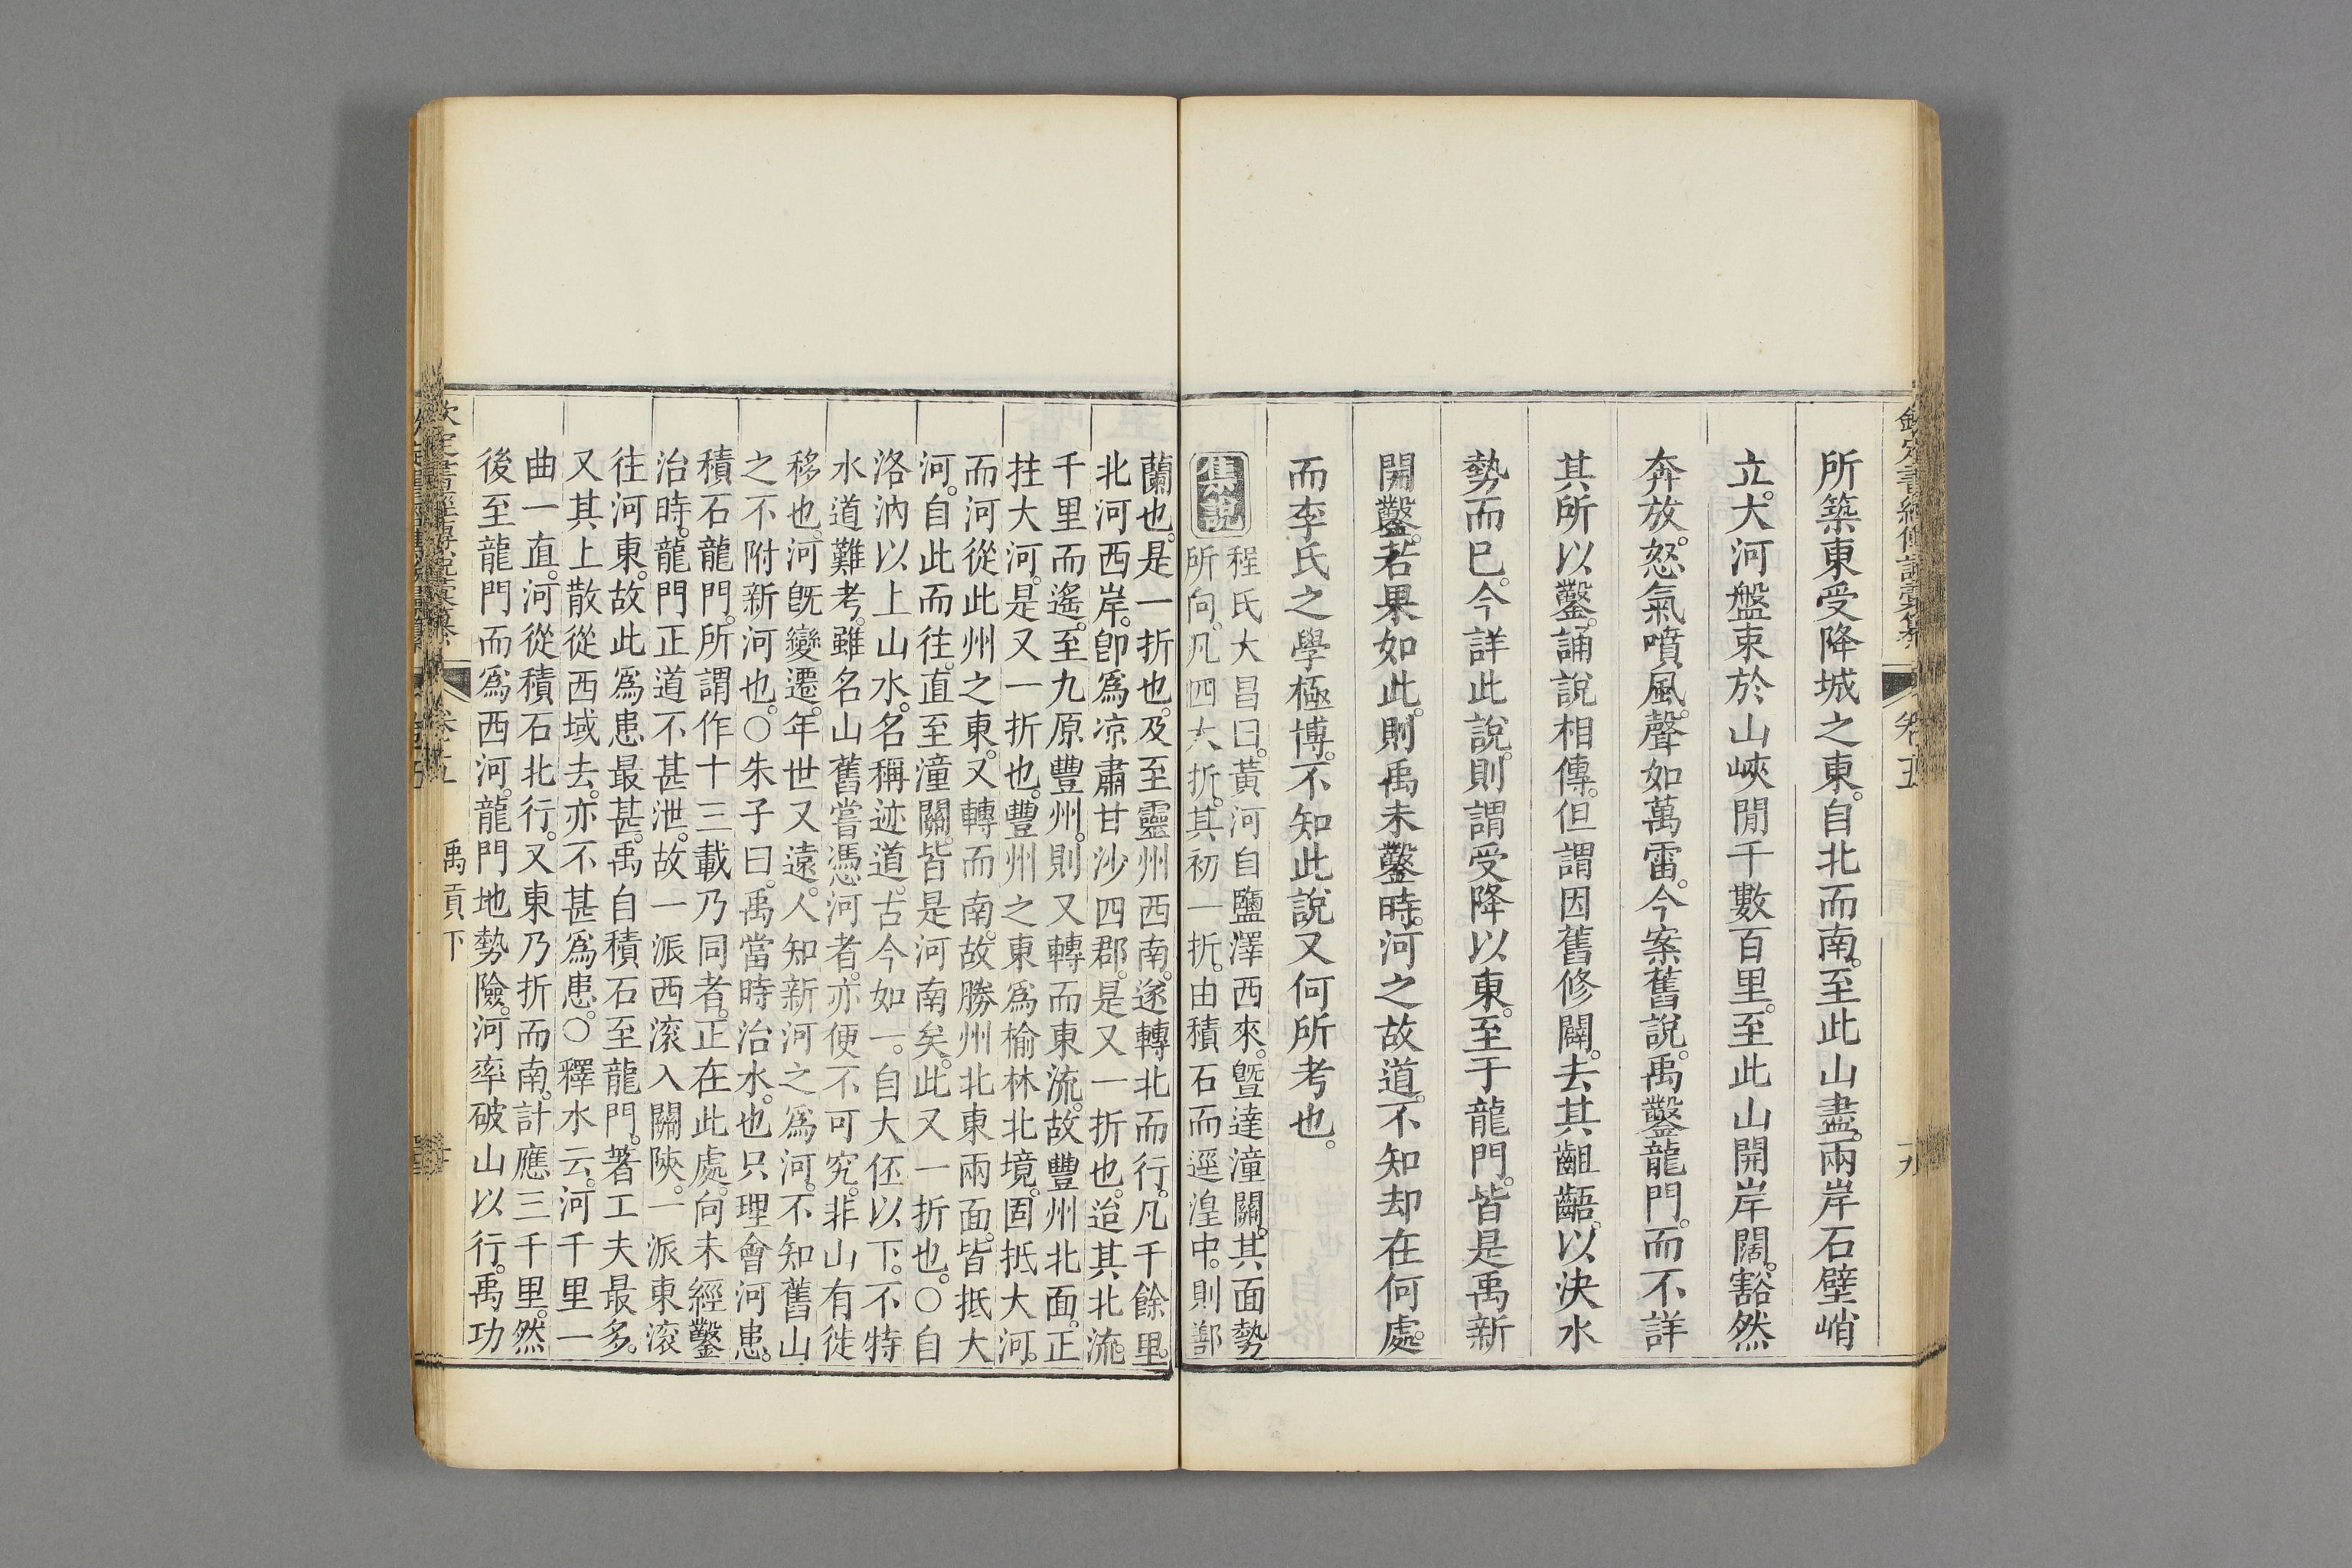 所築東受降城之東。自北而南。至此山盡。兩岸石壁峭
立。大河盤束於山峽閒千數百里。至此山開岸闊。豁然
奔放。怒氣噴風。聲如萬雷。今案舊說。禹鑿龍門。而不詳
其所以鑿。誦說相傳。但謂因舊修闢。去其齟齬。以決水
勢而已。今詳此說。則謂受降以東。至于龍門。皆是禹新
開鑿。若果如此。則禹未鑿時。河之故道。不知却在何處。
而李氏之學極博。不知此說又何所考也。
集說
程氏大昌曰。黃河自鹽澤西來。曁達潼關。其面勢
所向。凡四大折。其初一折。由積石而逕湟中。則鄯
蘭也。是一折也。及至靈州西南。遂轉北而行。凡千餘里。
北河西岸。卽爲凉肅甘沙四郡。是又一折也。迨其北流。
千里而遙。至九原豐州。則又轉而東流。故豐州北面。正
拄大河。是又一折也。豐州之東爲榆林北境。固抵大河。
而河從此州之東。又轉而南。故勝州北東兩面。皆抵大
河。自此而往。直至潼關。皆是河南矣。此又一折也。○自
洛汭以上山水。名稱迹道。古今如一。自大伾以下。不特
水道難考。雖名山舊嘗憑河者。亦便不可究。非山有徙
移也。河旣變遷。年世又遠。人知新河之爲河。不知舊山
之不附新河也。○朱子曰。禹當時治水。也只理會河患。
積石龍門。所謂作十三載乃同者。正在此處。向未經鑿
治時。龍門正道不甚泄。故一派西滚入關陝。一派東滚
往河東。故此爲患最甚。禹自積石至龍門。著工夫最多。
又其上散從西域去。亦不甚爲患。○釋水云。河千里一
曲一直。河從積石北行。又東乃折而南。計應三千里。然
後至龍門而爲西河。龍門地勢險。河率破山以行。禹功
禹貢下